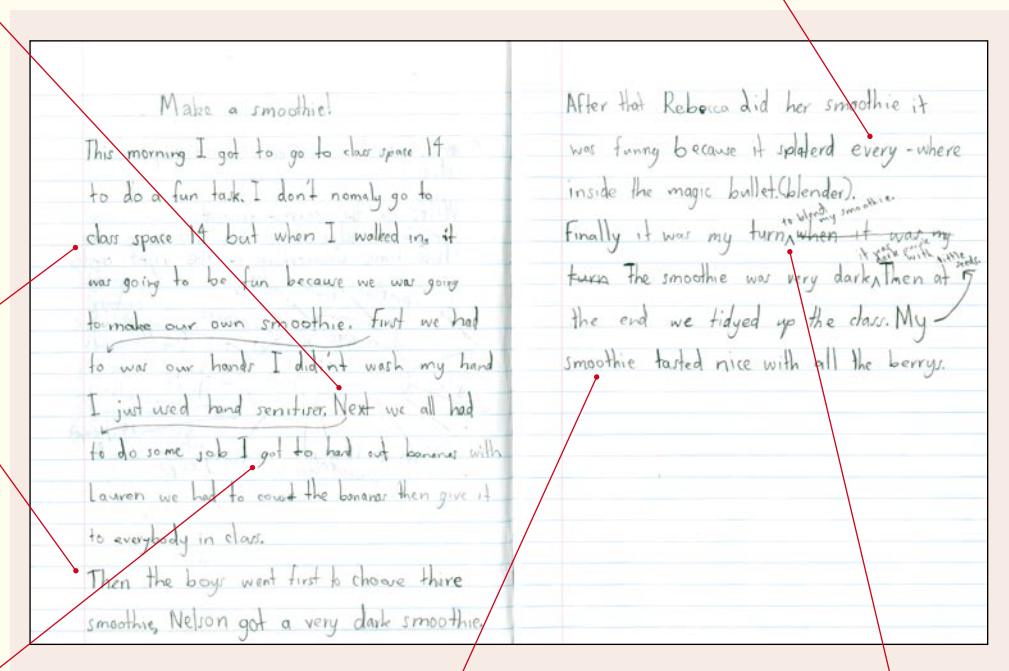 Make a smoothie!
This morning I got to go to class space 14
to do a fun task. I don't nomaly go to
class space 14 but when I walked in, it
was going to be fun because we was going
to make our own smoothie. First we had
to was our hands I didn't wash my hand
I just used hand senitiser. Next we all had
to do some job I got to hard out bananas with
Lauren we had to count the bananas then give it
to everybody in class.
Then the boys went first to choose thire
smoothie, Nelson got a very dark smoothie.
After that Rebecca did her smoothie it
was funny because it splaterd every-where
inside the magic bullet.(blender).
to blend my smoothie.
Finally it was my turn^when it was my
it was dark purple with little seeds.
turn The smoothie was very dark^Then at
the end we tidyed up the class. My
smoothie tasted nice with all the berrys.